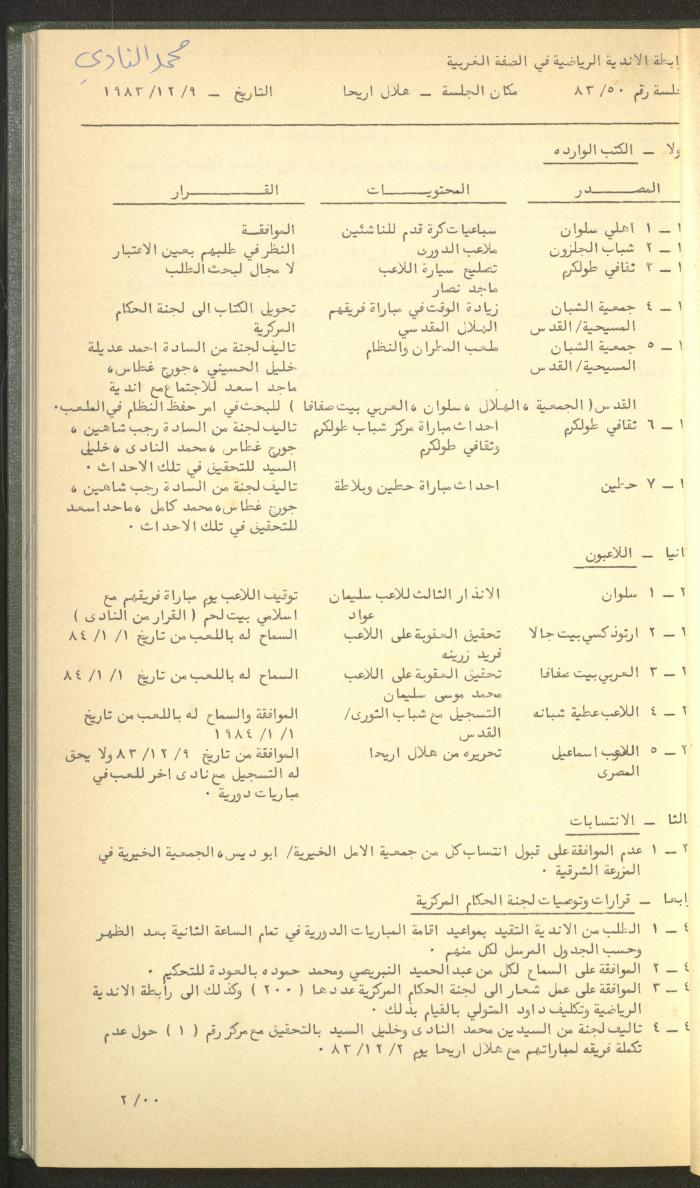 محمد النادي
رابطة الاندية الرياضية في الضفة الغربية
جلسة رقم ٨٣/٥٠ مكان الجلسة ـ هلال اريحا التاريخ ـ ١٩٨٣/١٢/٩
ولا ـ الكتب الوارده
المصــدر المحتويــات القــرار
١ ـ ١ اهلي سلوان سباعيات كرة قدم للناشئين الموافقة
١ ـ ٢ شباب الجلزون ملاعب الدورى النظر في طلبهم بعين الاعتبار
١ ـ ٣ ثقافي طولكرم تصليح سيارة اللاعب لا مجال لبحث الطلب
ماجد نصار
١ ـ ٤ جمعية الشبان زيادة الوقت في مباراة فريقهم تحويل الكتاب الى لجنة الحكام
المسيحية/ القدس الهلال المقدسي المركزية
١ ـ ٥ جمعية الشبان ملعب المطران والنظام تاليف لجنة من السادة احمد عديلة
المسيحية/ القدس خليل الحسيني ، جورج غطاس ،
ماجد اسعد للاجتماع مع اندية
القدس ( الجمعية ، الهلال ، سلوان ، العربي بيت صفافا ) للبحث في امر حفظ النظام في الملعب.
١ ـ ٦ ثقافي طولكرم احداث مباراة مركز شباب طولكرم تاليف لجنة من السادة رجب شاهين ،
وثقافي طولكرم جورج غطاس ، محمد النادى ، خليل
السيد للتحقيق في تلك الاحداث .
١ ـ ٧ حطين احداث مباراة حطين وبلاطة تاليف لجنة من السادة رجب شاهين ،
جورج غطاس ، محمد كامل ، ماجد اسعد
للتحقيق في تلك الاحداث .
انيا ـ اللاعبون
٢ ـ ١ سلوان الانذار الثالث للاعب سليمان توقيف اللاعب يوم مباراة فريقهم مع
عواد اسلامي بيت لحم ( القرار من النادى )
٢ ـ ٢ ارثوذكسي بيت جالا تحقيق العقوبة على اللاعب السماح له باللعب من تاريخ ٨٤/١/١
فريد زرينه
٢ ـ ٣ العربي بيت صفافا تحقيق العقوبة على اللاعب السماح له باللعب من تاريخ ٨٤/١/١
محمد موسى سليمان
٢ ـ ٤ اللاعب عطية شبانه التسجيل مع شباب الثورى/ الموافقة والسماح له باللعب من تاريخ
القدس ١٩٨٤/١/١
٢ ـ ٥ اللاعب اسماعيل تحريره من هلال اريحا الموافقة من تاريخ ٨٣/١٢/٩ ولا يحق
المصرى له التسجيل مع نادى اخر للعب في
مباريات دورية .
الثا ـ الانتسابات
٣ ـ ١ عدم الموافقة على قبول انتساب كل من جمعية الامل الخيرية/ ابو ديس ، الجمعية الخيرية في
المزرعة الشرقية .
ابعا ـ قرارات وتوصيات لجنة الحكام المركزية
٤ ـ ١ الطلب من الاندية التقيد بمواعيد اقامة المباريات الدورية في تمام الساعة الثانية بعد الظهر
وحسب الجدول المرسل لكل منهم .
٤ ـ ٢ الموافقة على السماح لكل من عبد الحميد النبريصي ومحمد حموده بالعودة للتحكيم .
٤ ـ ٣ الموافقة على عمل شعار الى لجنة الحكام المركزية عددها ( ٢٠٠ ) وكذلك الى رابطة الاندية
الرياضية وتكليف داود المتولي بالقيام بذلك .
٤ ـ ٤ تاليف لجنة من السيدين محمد النادى وخليل السيد بالتحقيق مع مركز رقم ( ١ ) حول عدم
تكملة فريقه لمباراتهم مع هلال اريحا يوم ٨٣/١٢/٢ .
٢/٠٠